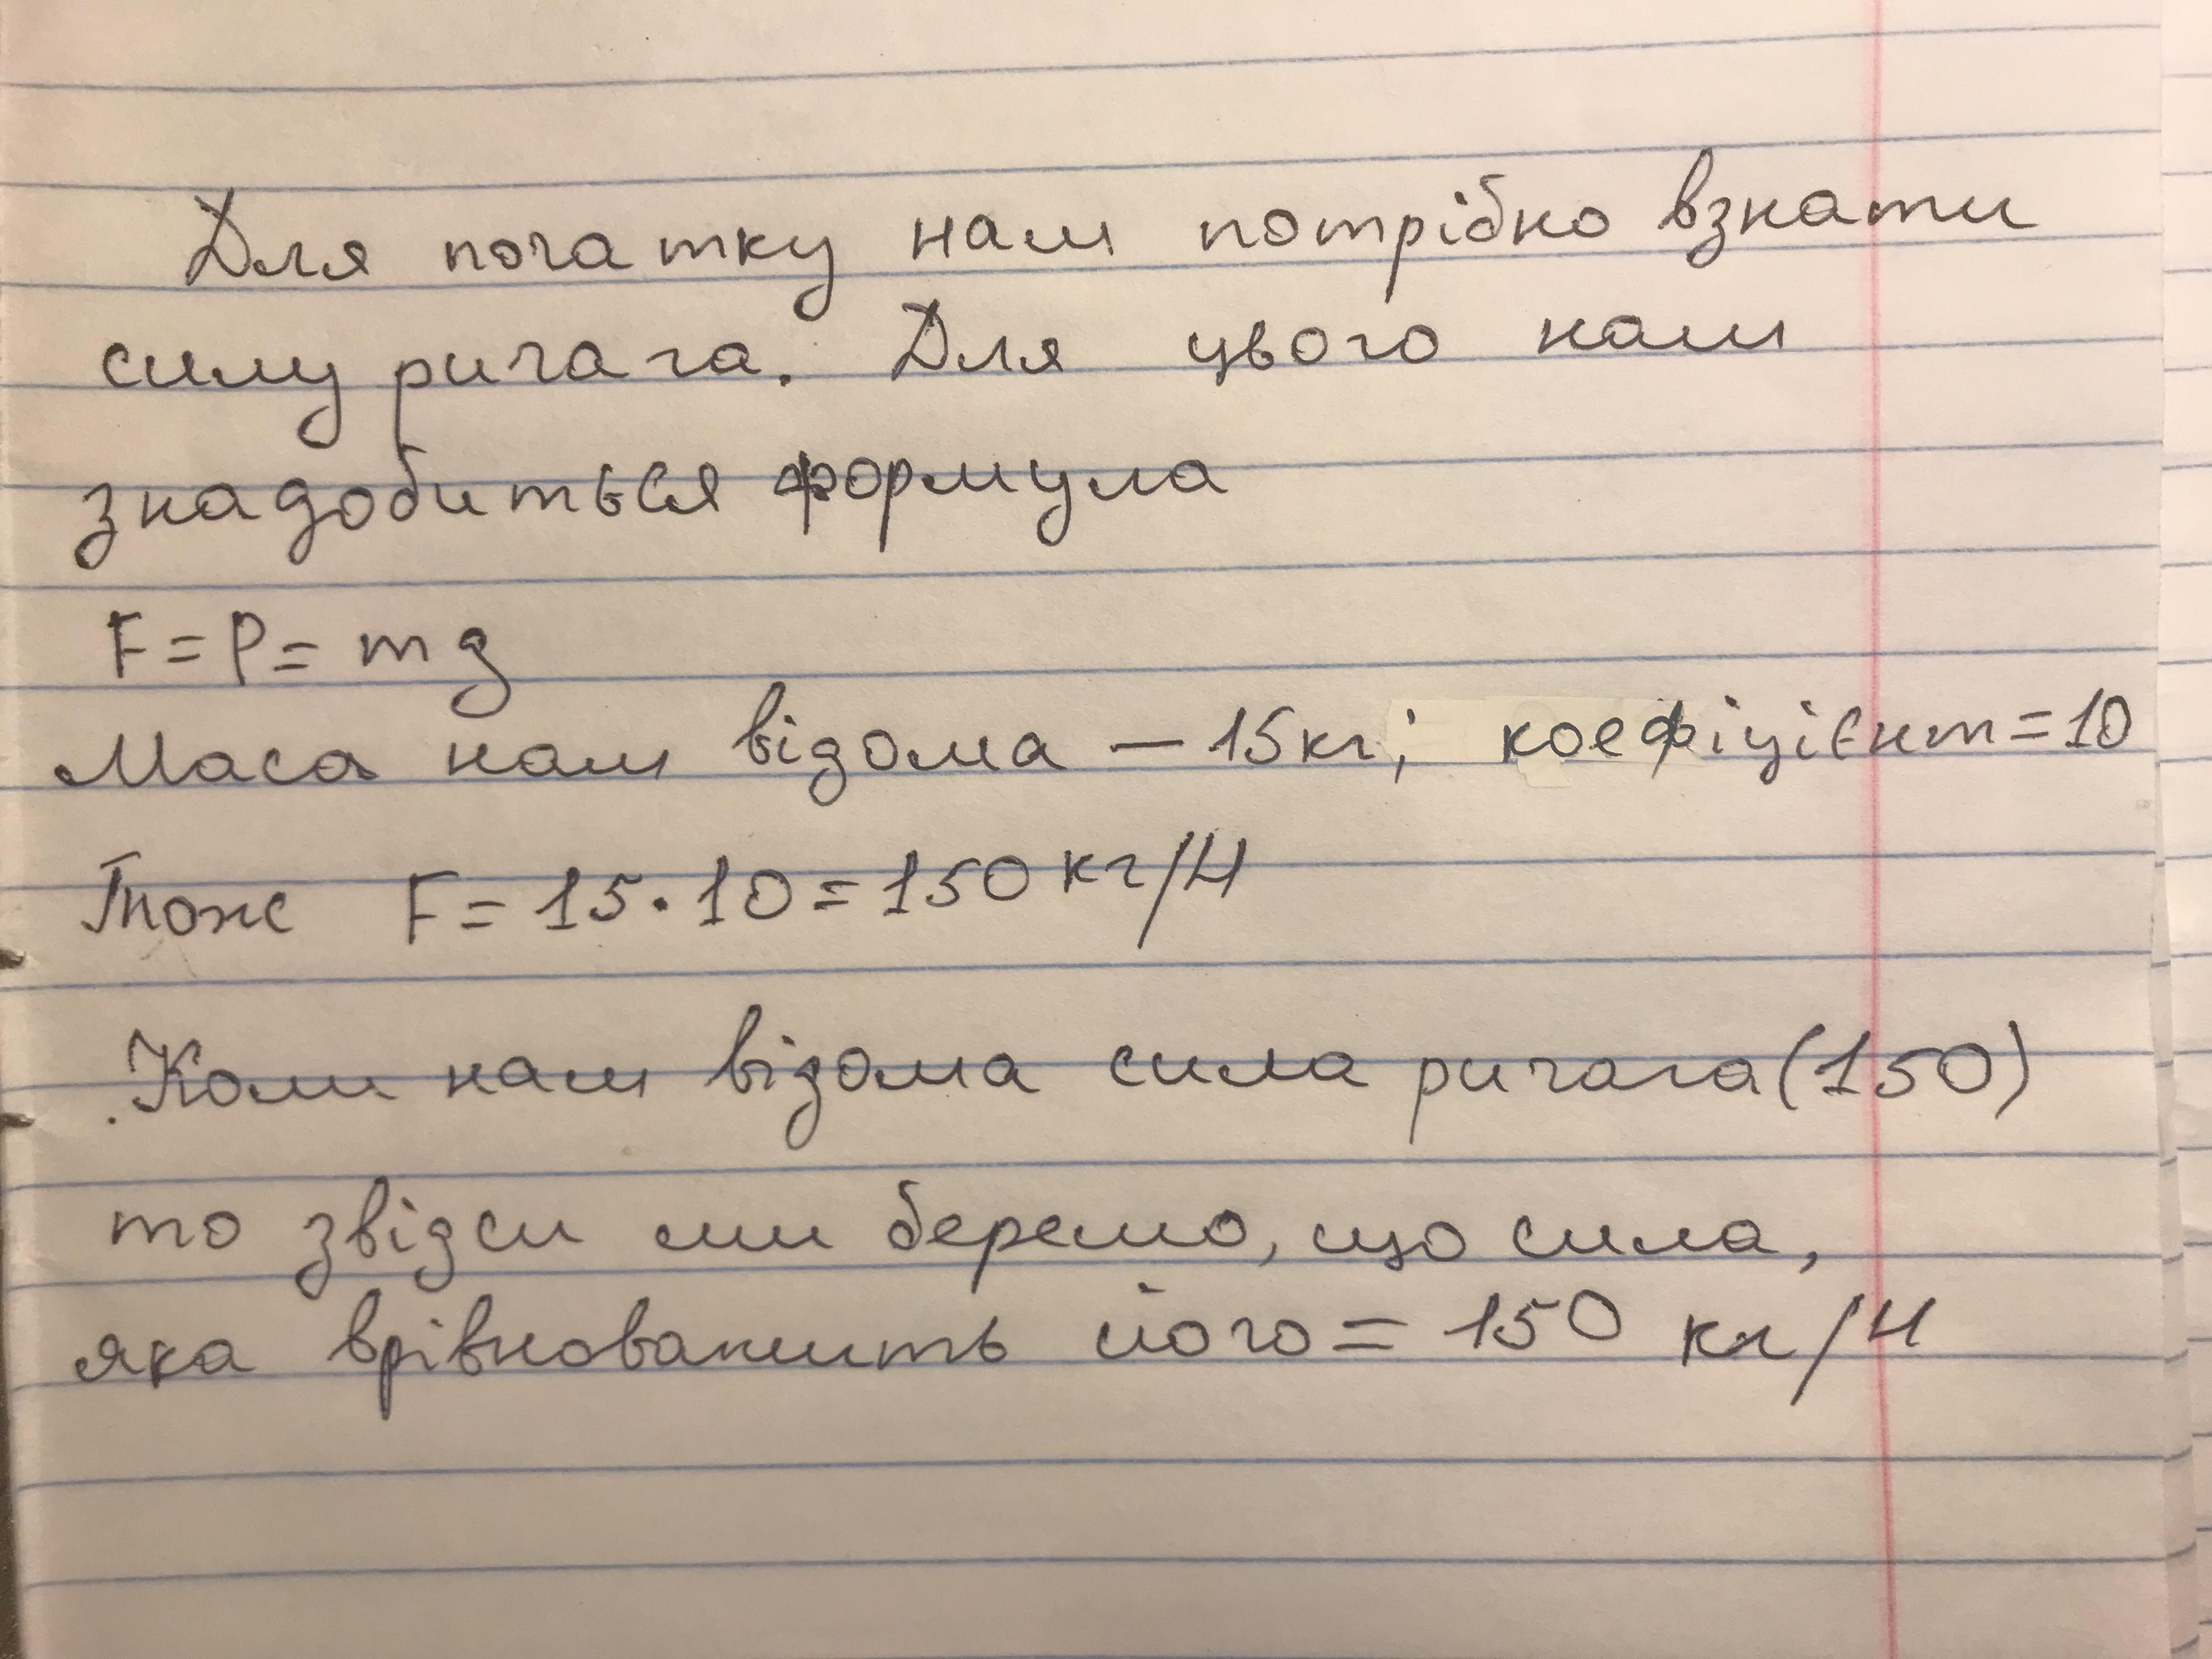 Для початку нам потрібно взнати
силу ричага. Для цього нам
знадобиться формула
F = P = mg
Маса нам відома – 15кг; коефіцієнт = 10
Тож F = 15 · 10 = 150 кг/Н
Коли нам відома сила ричага (150)
то звідси ми беремо, що сила,
яка врівноважить його = 150 кг/Н